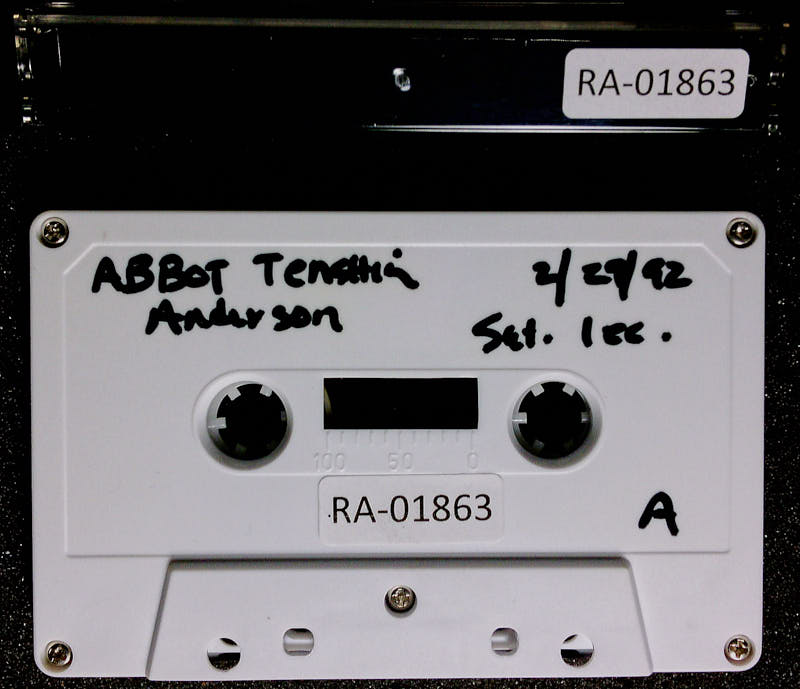 RA-01863
ABBOT Tenshin 2/29/92
Anderson Sat. lec.
100 50 0
RA-01863
A